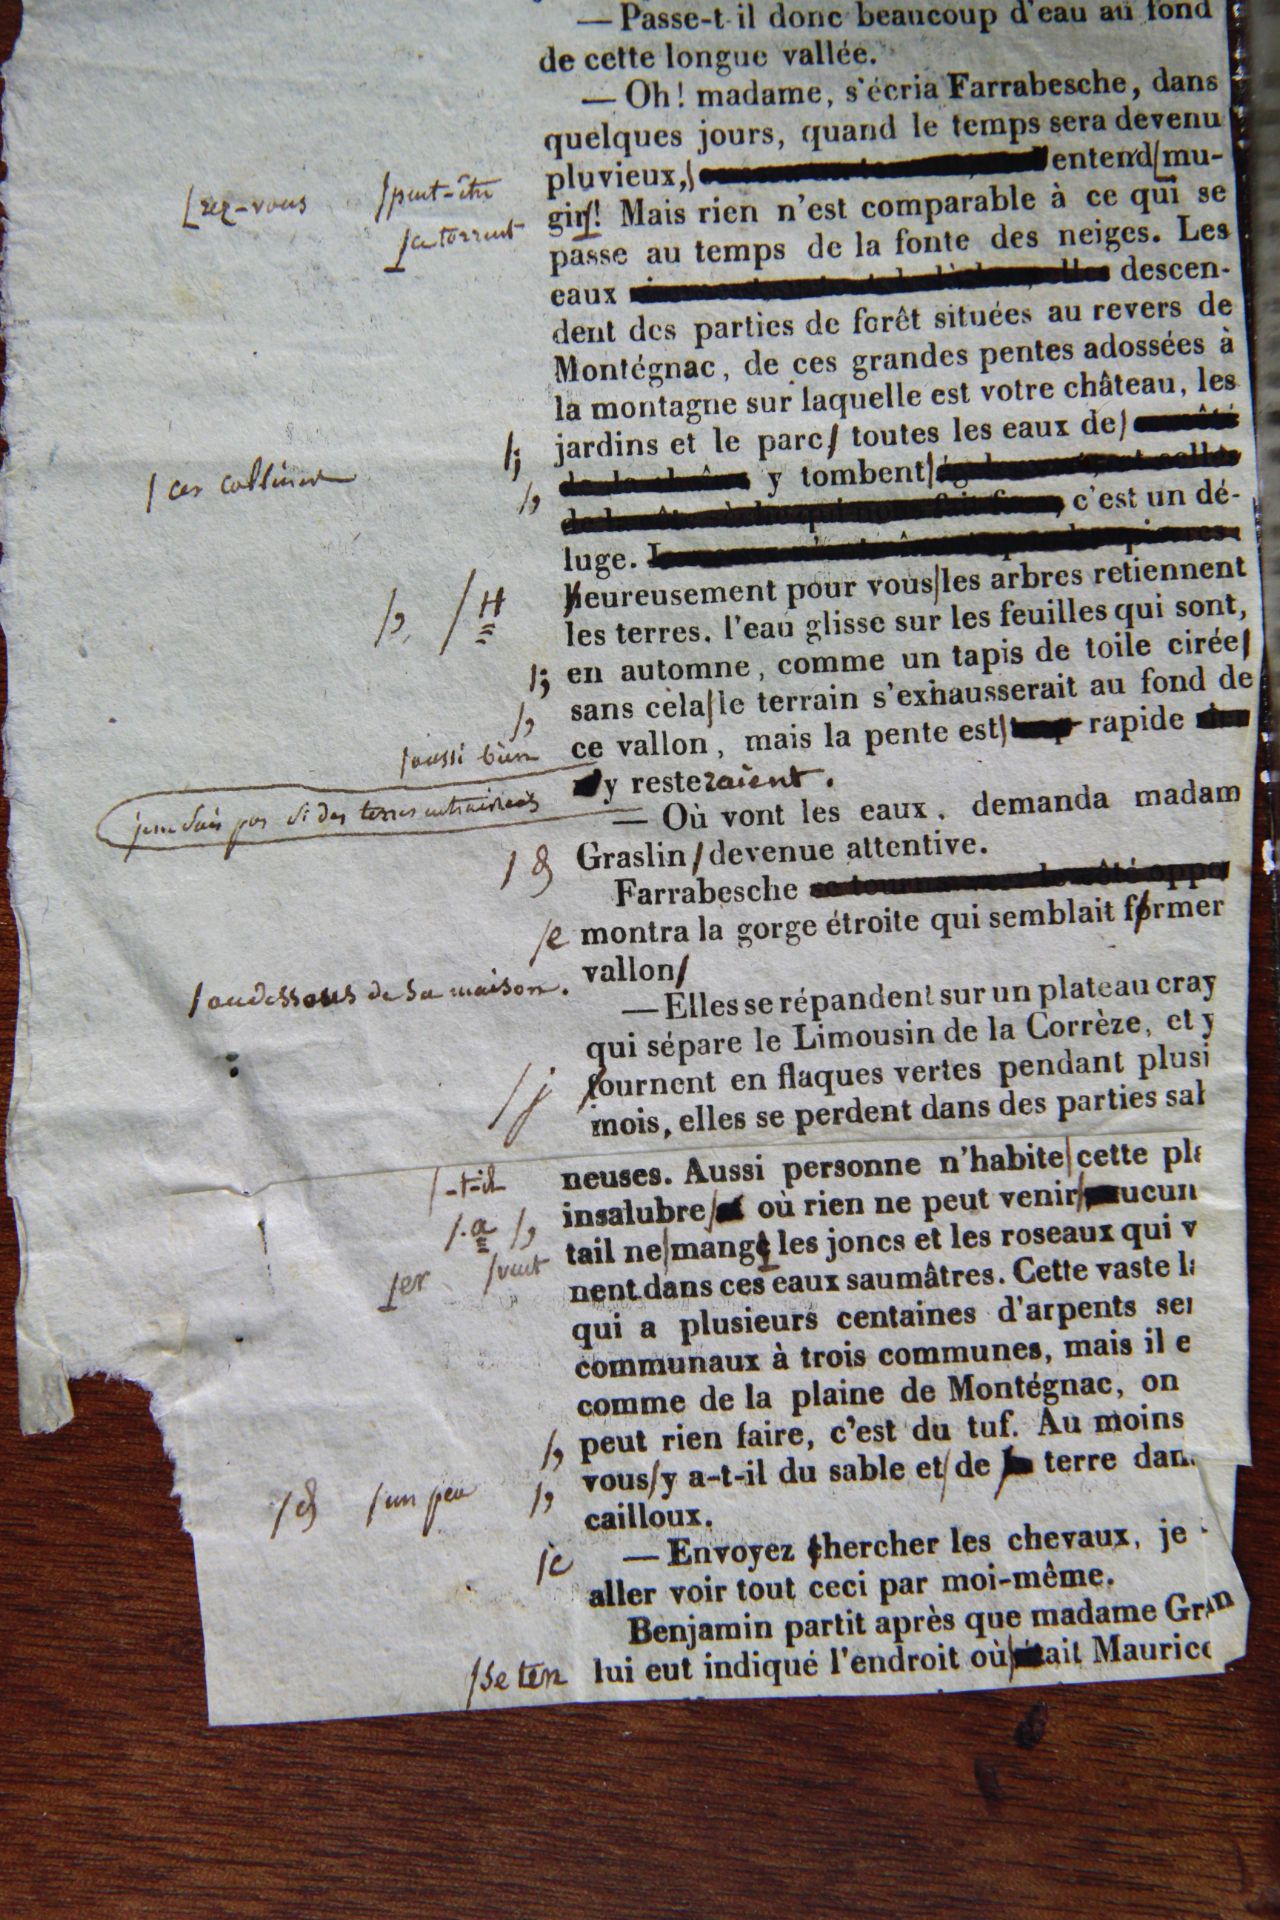 — Passe-t-il donc beaucoup d'eau au fond
de cette longue vallée.
— Oh! madame, s'écria Farrabesche, dans
quelques jours, quand le temps sera devenu
pluvieux, entend mu-
rez-vous peut-être
gir! Mais rien n'est comparable à ce qui se
ce torrent
passe au temps de la fonte des neiges. Les
eaux descen-
dent des parties de forêt situées au revers de
Montégnac, de ces grandes pentes adossées à
la montagne sur laquelle est votre château, les
jardins et le parc toutes les eaux de
;
ces collines
y tombent
,
c'est un dé-
luge.
heureusement pour vous les arbres retiennent
, H
les terres. l'eau glisse sur les feuilles qui sont,
en automne, comme un tapis de toile cirée
;
sans cela le terrain s'exhausserait au fond de
,
ce vallon, mais la pente est rapide
aussi bien
y resteraient.
je ne sais pas si des terres entrainées
— Où vont les eaux, demanda madam
Graslin devenue attentive.
Farrabesche
montra la gorge étroite qui semblait former
e
vallon
au dessous de sa maison.
— Elles se répandent sur un plateau cray
qui sépare le Limousin de la Corrèze, et y
journent en flaques vertes pendant plusi
j
mois, elles se perdent dans des parties sa
neuses. Aussi personne n'habite cette pla
-t-il
insalubre où rien ne peut venir ucun
. a ,
tail ne mange les joncs et les roseaux qui v
er veut
nent dans ces eaux saumâtres. Cette vaste la
qui a plusieurs centaines d'arpents ser
communaux à trois communes, mais il e
comme de la plaine de Montégnac, on
peut rien faire, c'est du tuf. Au moins
,
vous y a-t-il du sable et de terre dan
un peu ,
cailloux.
— Envoyez chercher les chevaux, je
c
aller voir tout ceci par moi-même.
Benjamin partit après que madame Gra n
lui eut indiqué l'endroit où était Maurice
se ten